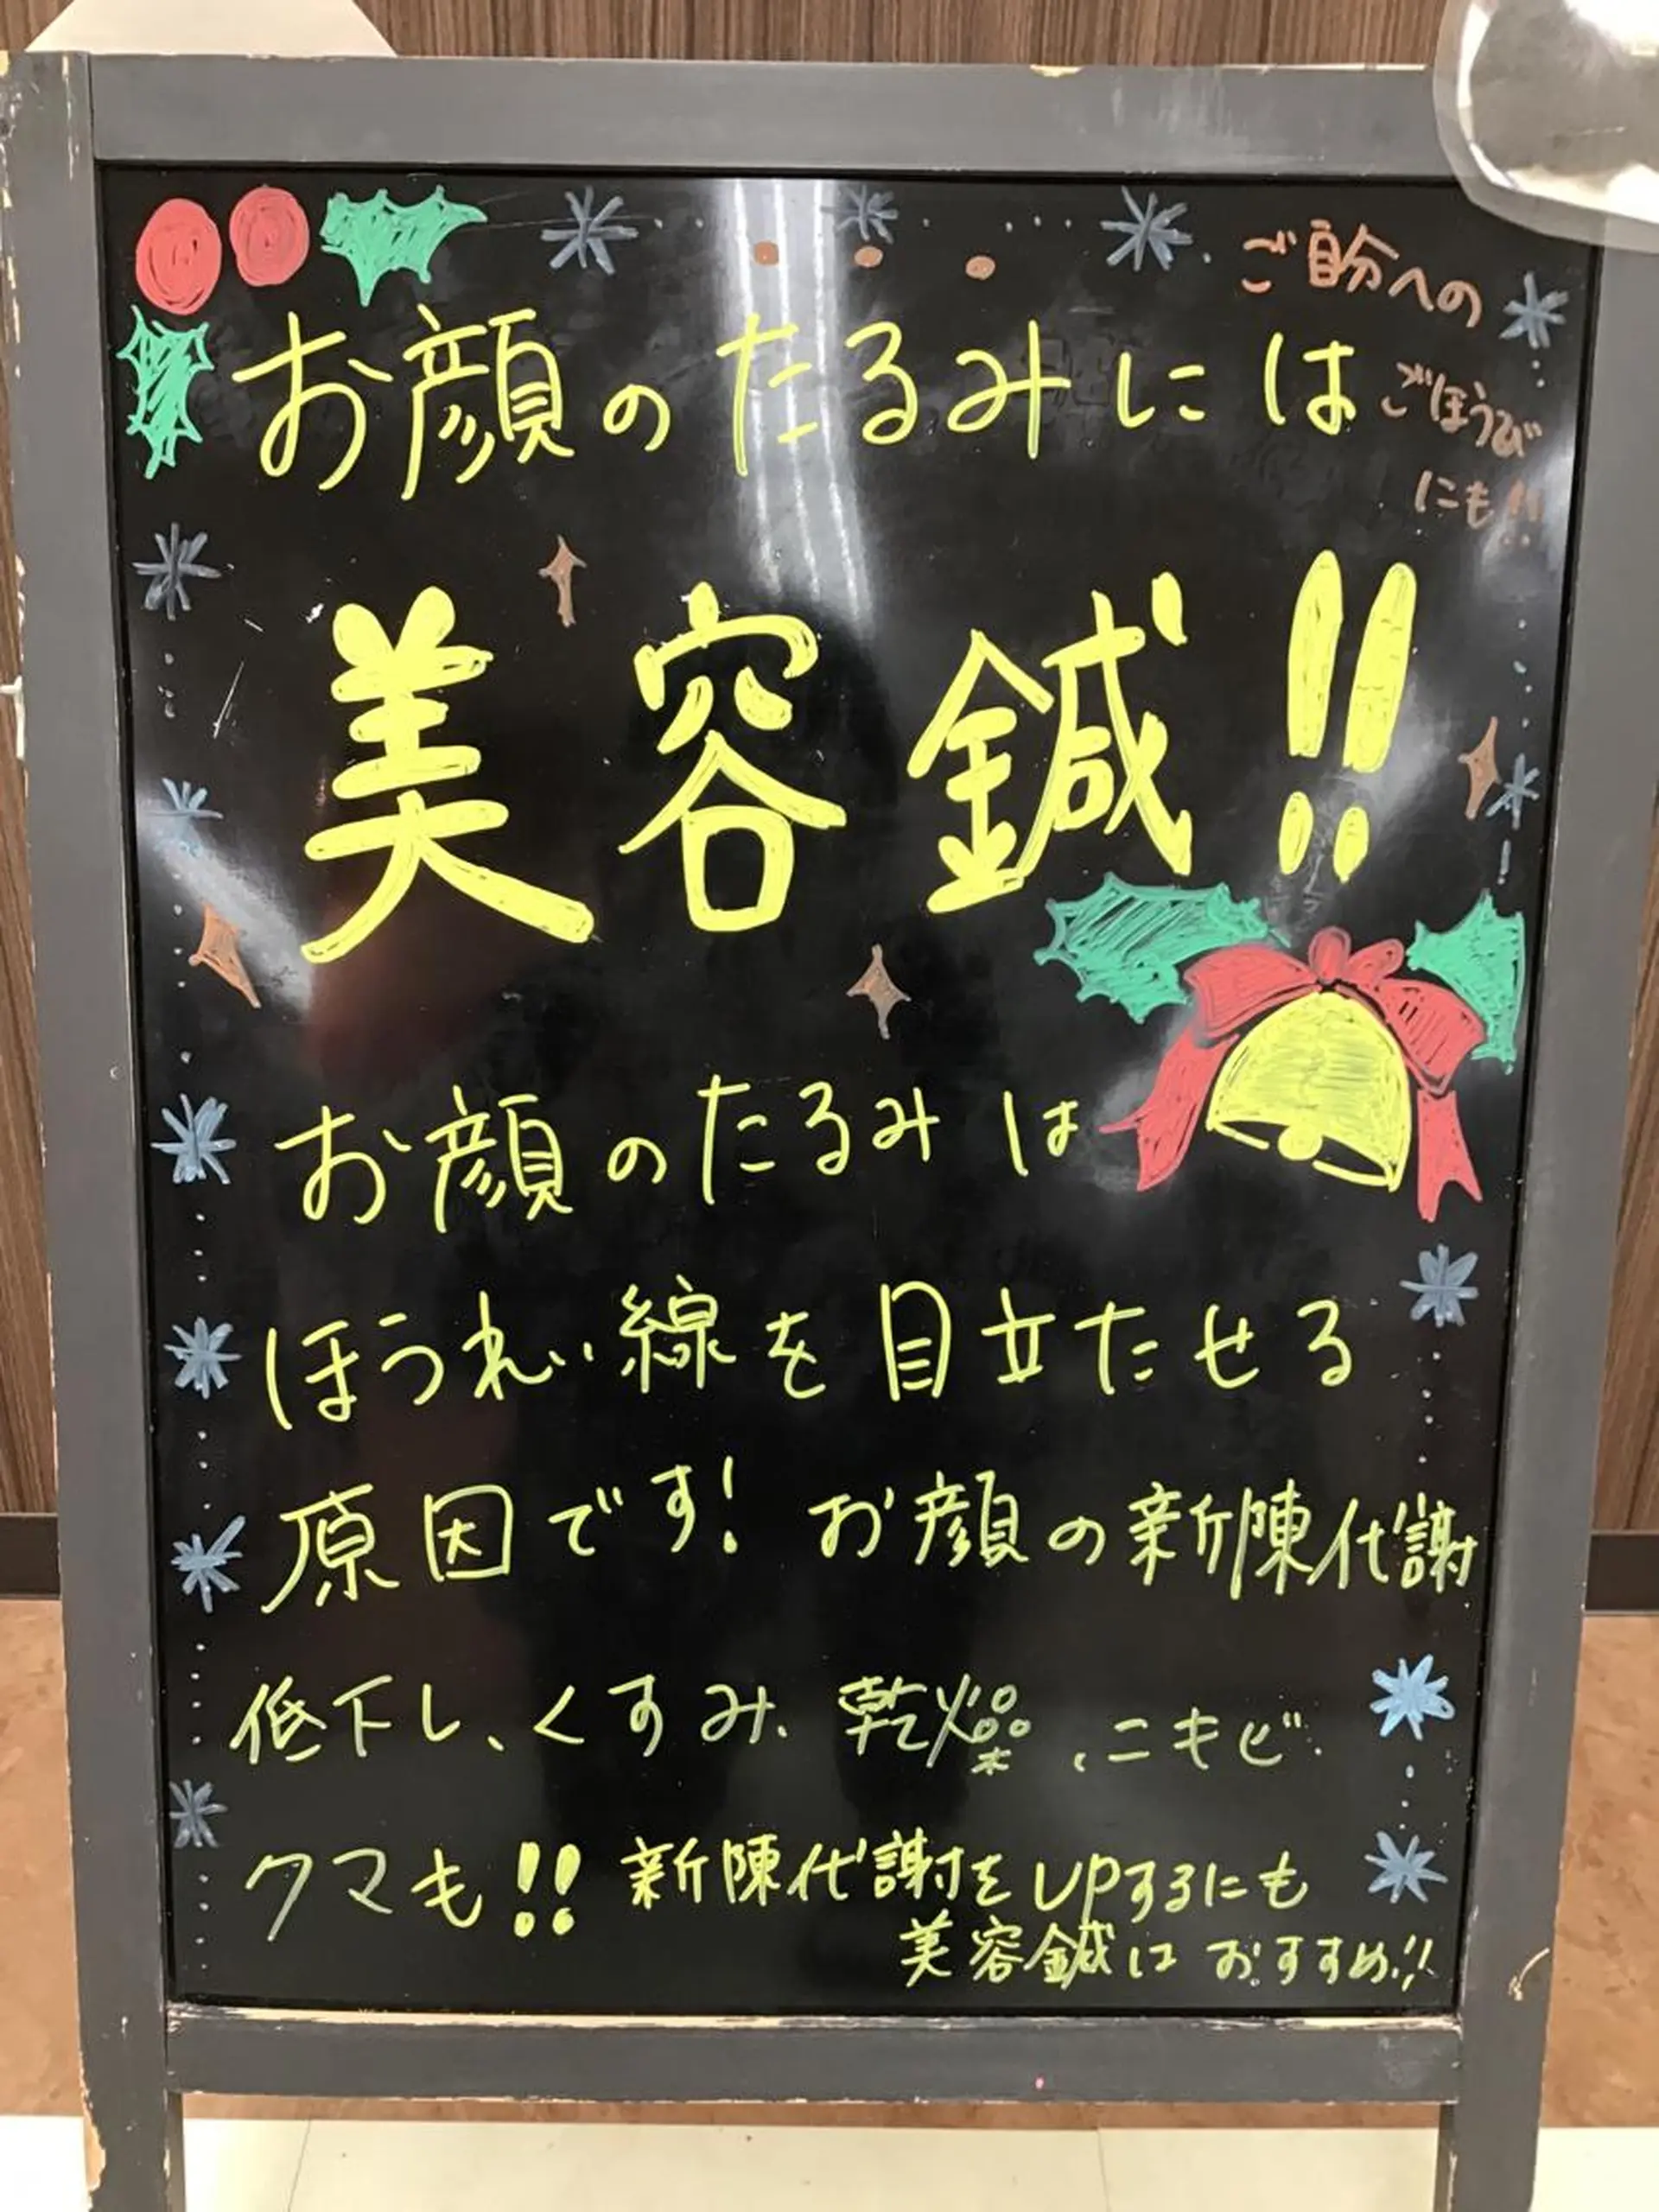 ご自分への
ごほうび
にも!!
お顔のたるみには
美容鍼!!
お顔のたるみは
ほうれい線を目立たせる
原因です! お顔の新陳代謝
低下し、くすみ、乾燥、ニキビ
クマも!! 新陳代謝をUPするにも
美容鍼はおすすめ!!